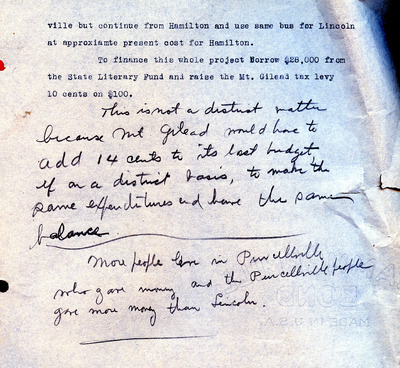 ville but continue from Hamilton and use same bus for Lincoln
at approxiamte present cost for Hamilton.
To finance this whole project Borrow $28,000 from
the State Literary Fund and raise the Mt. Gilead tax levy
10 cents on $100.
This is not a district matter
because Mt Gilead would have to
add 14 cents to its last budget,
if on a district basis, to make the
same expenditures and have the same
balance.
More people live in Purcellville
who gave money and the Purcellville people
gave more money than Lincoln.